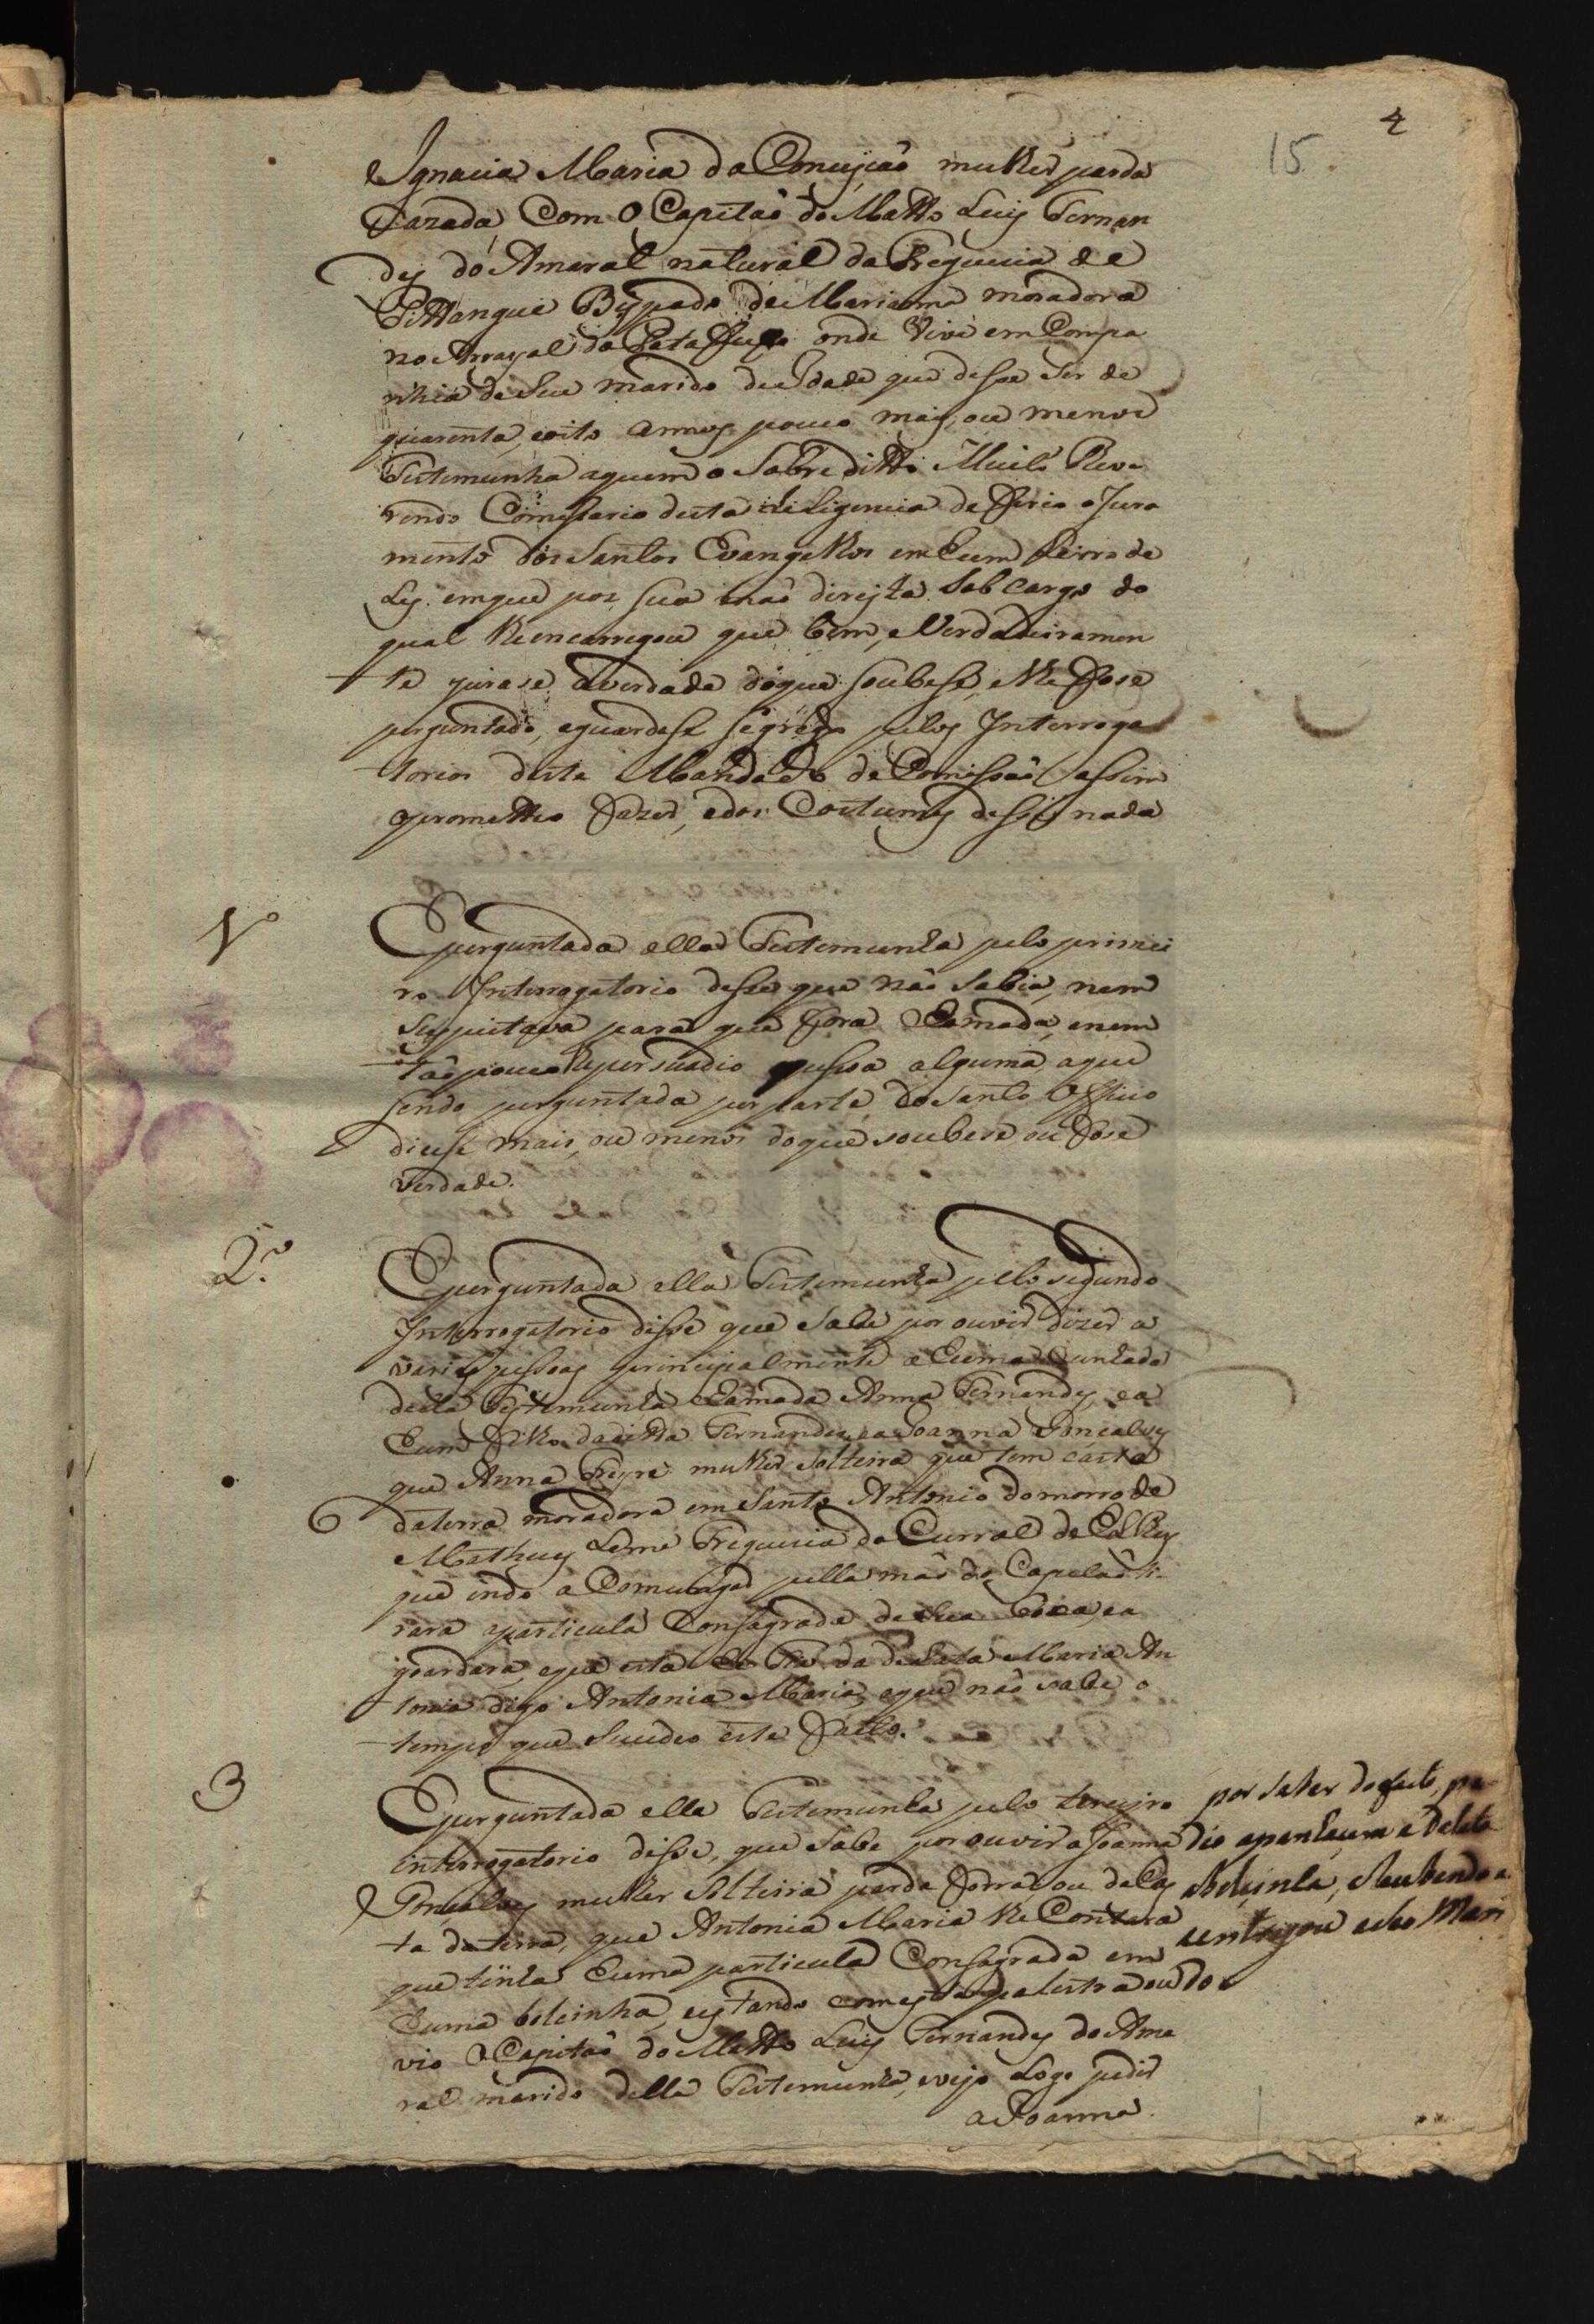 4
15.
Ignacia Maria da Concejçaõ mulher parda
Cazada Com O Capitaõ do Matto Luis Fernan
des do Amaral natural da Freguecia de
Pittangui Bispado de Marianna moradora
no Arrayal da onde Vive em Compa
nhia de Seu marido de Idade que desse ser de
quarenta, e oito annos pouco mais, ou menos
Testemunha aquem o Sobre ditto Muito Reve
rendo Comessario desta deligencia deferio o Jura
mento dos Santos Evangelhos em hum Livro de
Les. em que pos sua maõ direjta Sobcargo do
qual lhe encarregou que bem, e Verdadeiramen
te jurase averdade doque soubese, e lhe Fose
perguntado, eguardese segredo pelos Interroga
torios desta Mandado de Comissaõ e assim
oprometteo Fazer, edos Costumes desse nada
1º
E perguntada ella Testemunha pelo primei
ro Interrogatorio desse que naõ Sabia, nem
Suspeitava para que Fora Chamada, enem
taõ pouco lhepersuadio pessoa alguma, aque
sendo perguntada por parte do Santo Officio
dicese mais, ou menos doque soubese, ou Fose
Verdade.
2º
E perguntada ella Testemunha pello segundo
Interrogatorio disse que Sabe por ouvir dizer a
varias pessoas principalmente a huma Cunhada
della Testemunha Chamada Anna Fernandes, ea
hum Filho da ditta Fernandes, ea Joanna Gonçalves
que Anna Freyre mulher Solteira que tem casta
daterra moradora em Santo Antonio do morro de
Matheus Leme Freguecia do Curral de ElRey
que indo a Comungar pella maõ do Capelaõ ti
rara aparticula Consagrada de Sua boca, ea
goardara, eque esta a Maria An
tonia digo Antonia Maria, eque naõ sabe o
tempo que Sucedeo este Facto.
3
E perguntada ella Testemunha pelo terceyro
interrogatorio disse, que Sabe por ouvir a Joanna
Gonçalves mulher Solteira parda Forra, ou da Cas
ta daterra, que Antonia Maria lhe Contara
que tinha huma particula Consagrada em
huma bolcinha, eestando comesta palestra ou
vio O Capitaõ do Matto Luis Fernandes do Ama
ral marido della Testemunha, evejo Logo pedir
a Joanna
por saber dofeito, pe
dio apanhaçem a delata
abolçinha, e havendo a
entregou ado Mari
do